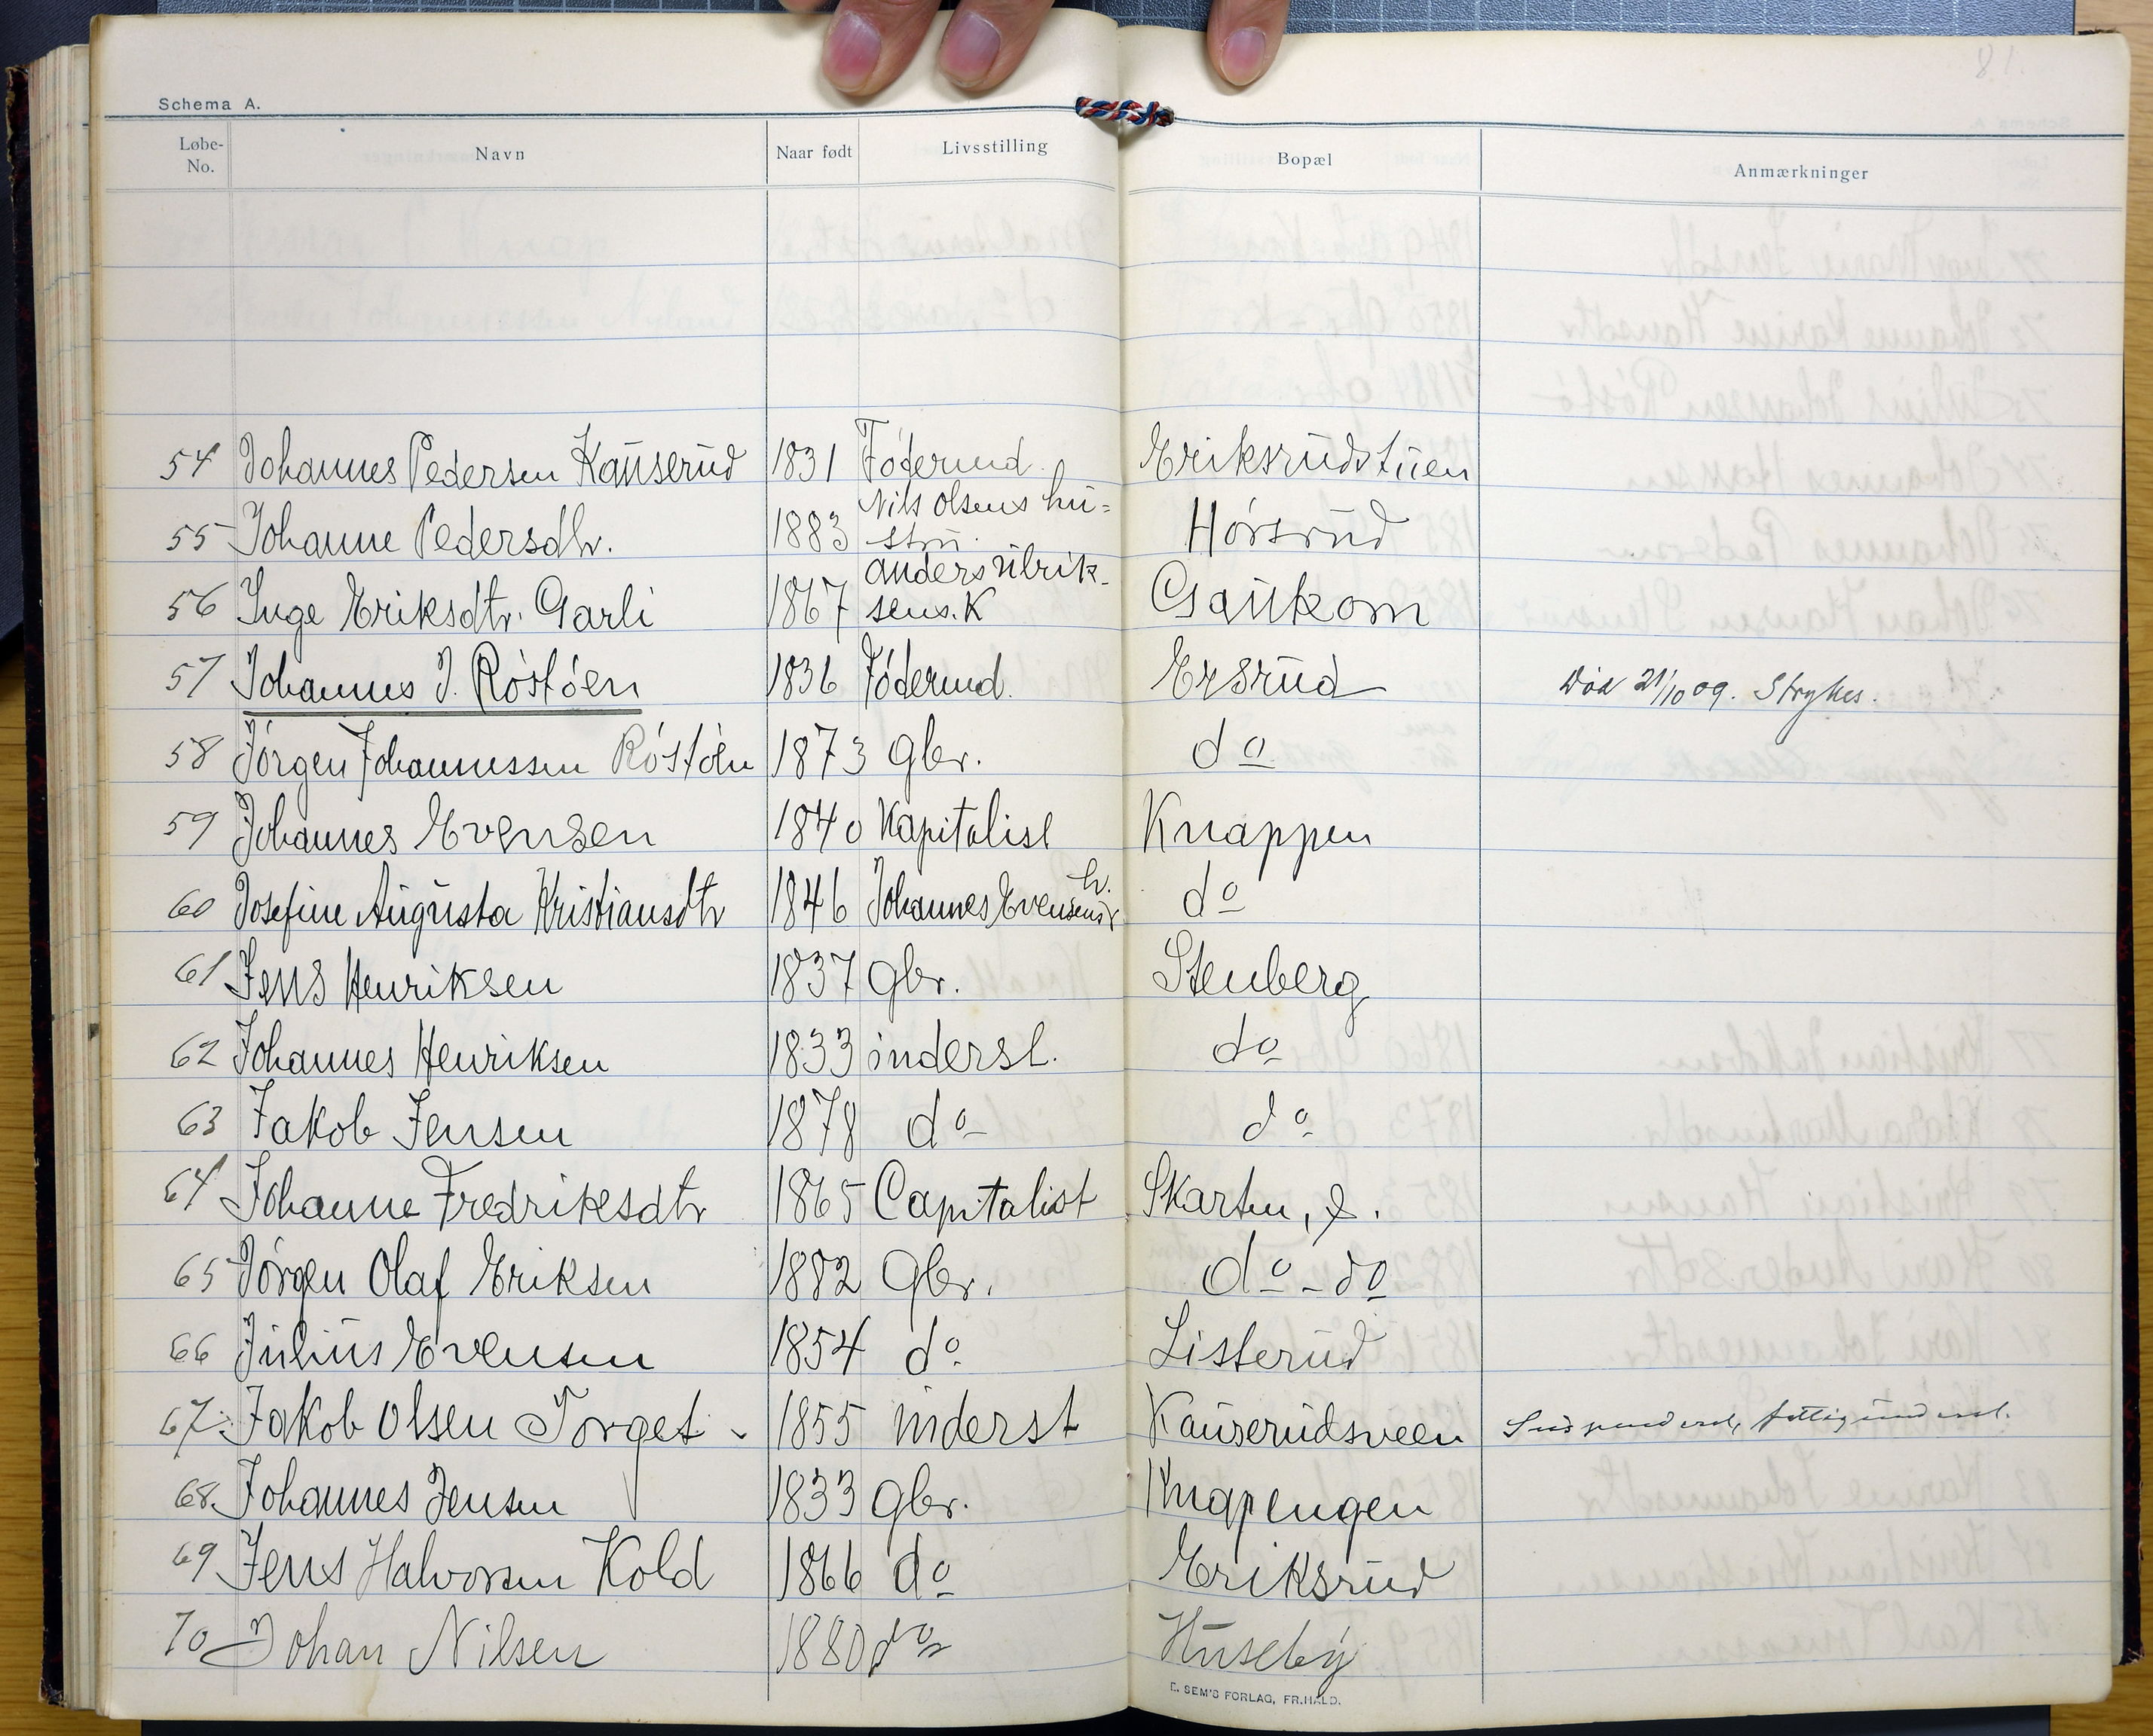 81.
Schema A.
Løbe-No. Navn Naar født Livsstilling Bopæl Anmærkninger
54 Johannes Pedersen Kauserud 1831 Föderaad Eriksrudstuen
55 Johanne Pedersdtr. 1883 Nils Olsens hu=
stru. Hörsrud
56 Inge Eriksdtr. Garli 1867 Anders Ulrik-
sens. K Gaukom
57 Johannes J. Röstöen 1836 Föderaad. Ersrud Död 21/10 09. Strykes.
58 Jörgen Johannessen Röstöen 1873 Gbr. do
59 Johannes Evensen 1840 Kapitalist Knappen
60 Josefine Augusta Kristiansdtr 1846 Johannes Evensens h. do
61 Jens Henriksen 1837 Gbr. Stenberg
62 Johannes Henriksen 1833 inderst. do
63 Jakob Jensen 1878 do do
64 Johanne Fredriksdtr 1865 Capitalist Skarten, ö.
65 Jörgen Olaf Eriksen 1882 Gbr. do - do
66 Julius Evensen 1854 do Listerud
67. Jakob Olsen Torget 1855 inderst Kauserudsveen Suspenderet, fattigunderst.
68. Johannes Jensen 1833 gbr. Knapengen
69 Jens Halvorsen Kold 1866 do Eriksrud
70 Johan Nilsen 1880 do Huseby
E. SEM'S FORLAG, FR.HALD.